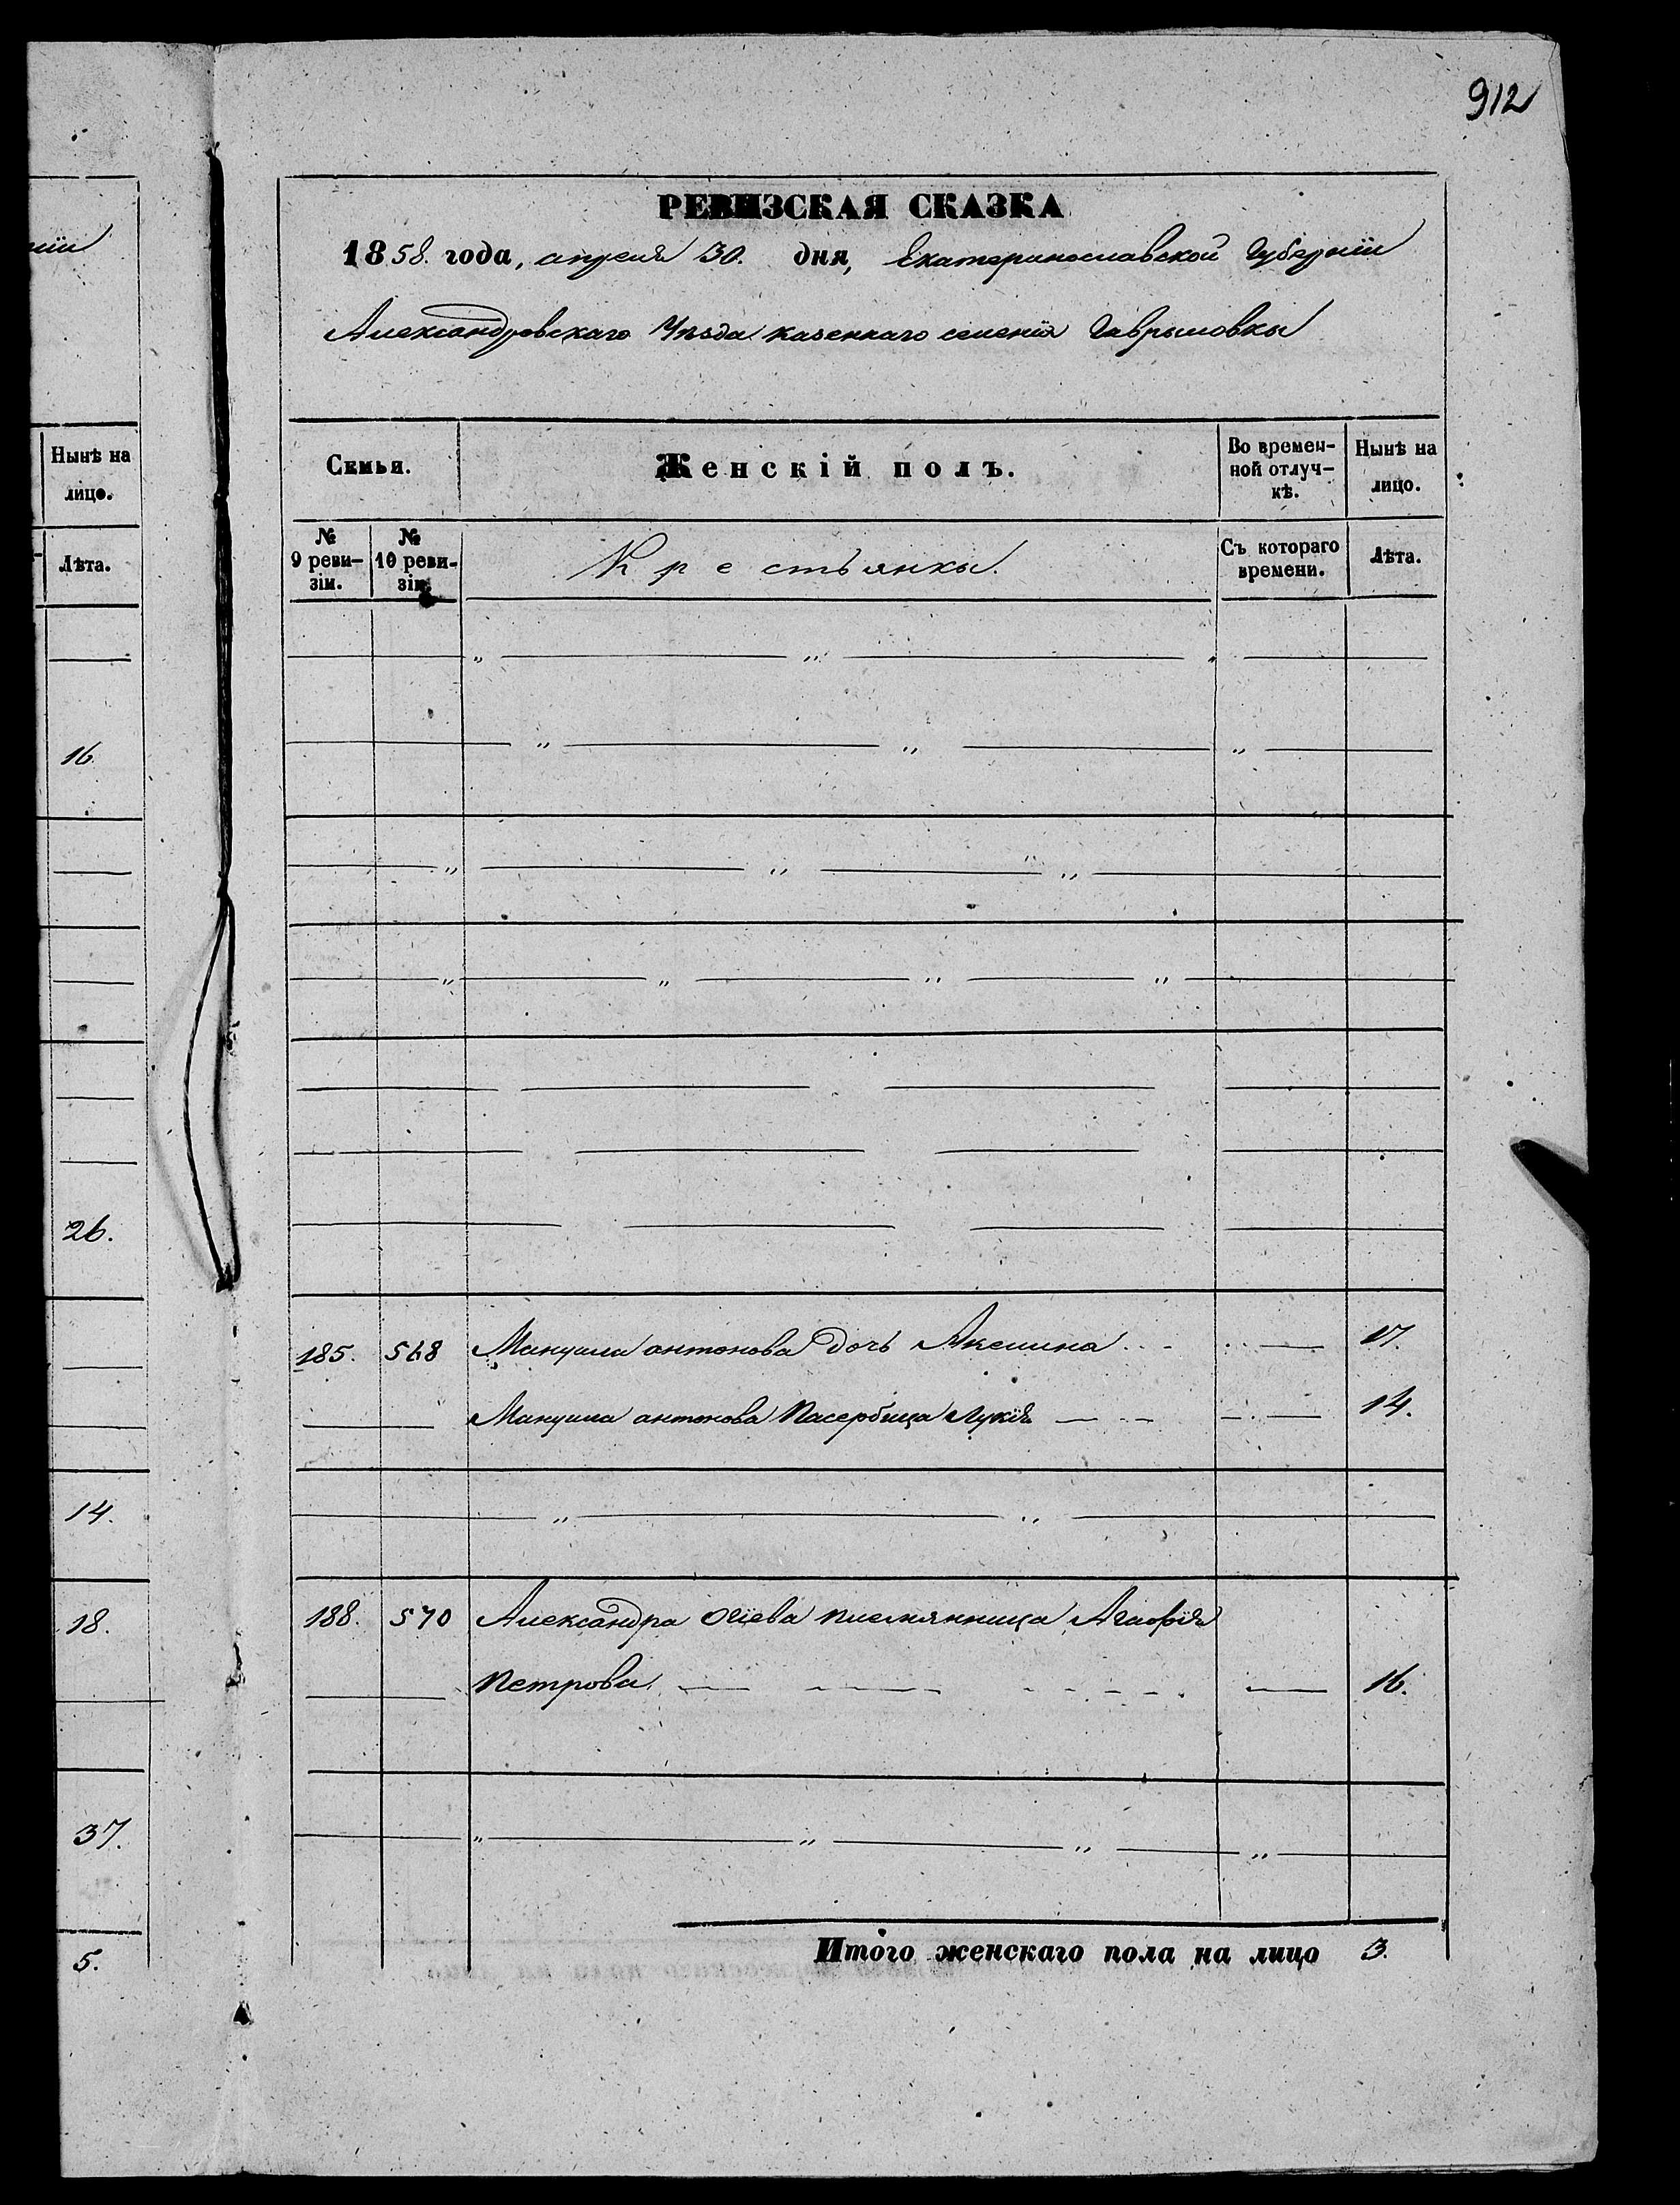 912
ніи
РЕВИЗСКАЯ СКАЗКА
1858. года, апреля 30. дня, Екатеринославской Губерніи
Александровскаго Уѣзда казеннаго селенія Гаврыловки
Нынѣ на
лицо.
Лѣта.
16.
26.
14.
18.
37.
5.
Семьи.
Женскій полъ.
Во времен-
ной отлуч-
кѣ.
Нынѣ на
лицо.
№
9 реви-
зіи.
№
10 реви-
зіи.
Крестьянки.
Съ котораго
времени.
Лѣта.
185. 568 Мануила антонова дочь Акелина 17.
Мануила антонова Пасербица Лукія 14.
188. 570 Александра Огіева племянница Агафія
Петрова 16.
Итого женскаго пола на лицо 3.